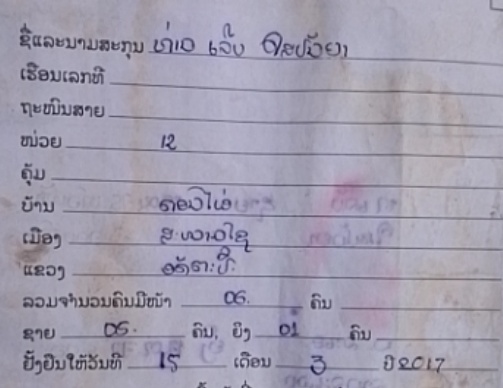 ຊື່ແລະນາມສະກຸນ ທ່າວ ເຈັບ
ເຮືອນເລກທີ
ຖະໜົນສາຍ
ໜ່ວຍ 12
ຄຸ້ມ
ບ້ານ
ເມືອງ ສະໜາມໄຊ
ແຂວງ ອັດຕະປື
ລວມຈຳນວນຄົນມີໜ້າ 06. ຄົນ
ຊາຍ 05. ຄົນ, ຍິງ 01 ຄົນ
ຢັ້ງຢືນໃຫ້ວັນທີ 15 ເດືອນ 3 ປີ 2017